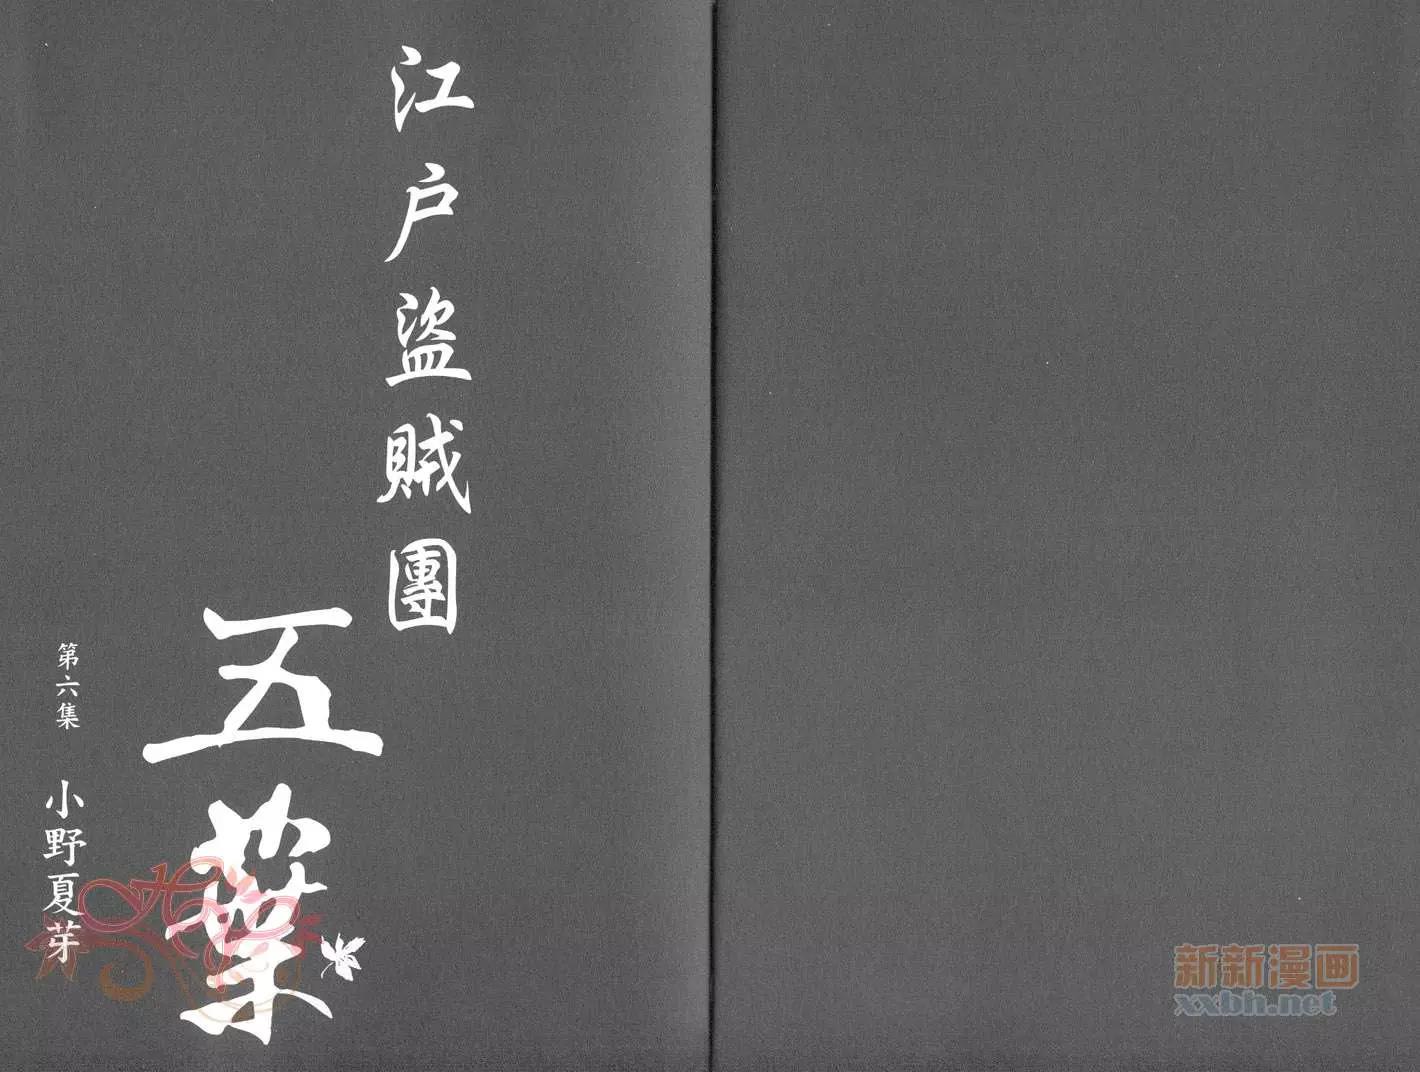 江戶盜賊團
五葉
第六集
小野夏芽
新新漫画
xxbh.net